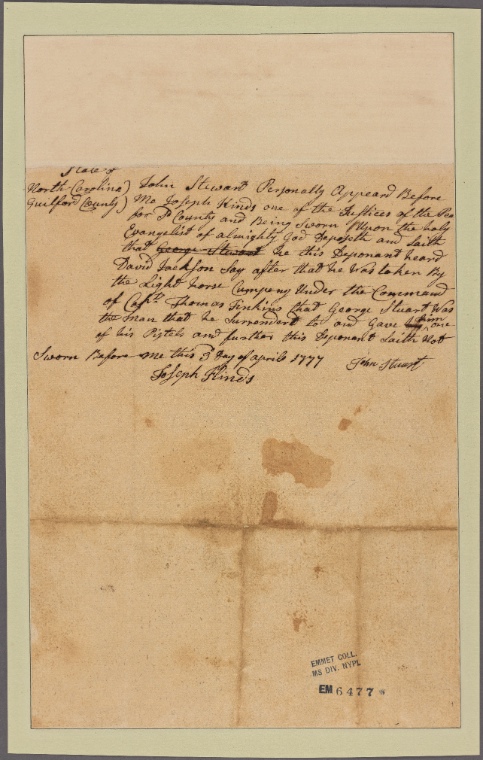 State of
North Carolina) John Stewart Personally Appeard Before
Guilford County) Me Joseph Hinds one of the Justices of the Pea
for sd County and Being Sworn Upon the holy
Evangelist of almighty God Deposeth and Saith
that George Stewart he this Deponant heard
David Jackson Say after that he Was taken By
the Light horse Company Under the Command
of Capt. Thomas Jenkins that George Stuart Was
the man that he Surrendard to and Gave him one
of his Pistels and further this Deponant Saith Not
Sworn Before me this 3 Day of april 1777 John Stuart
Joseph Hinds
EMMET COLL.
MS DIV. NYPL
EM 6477